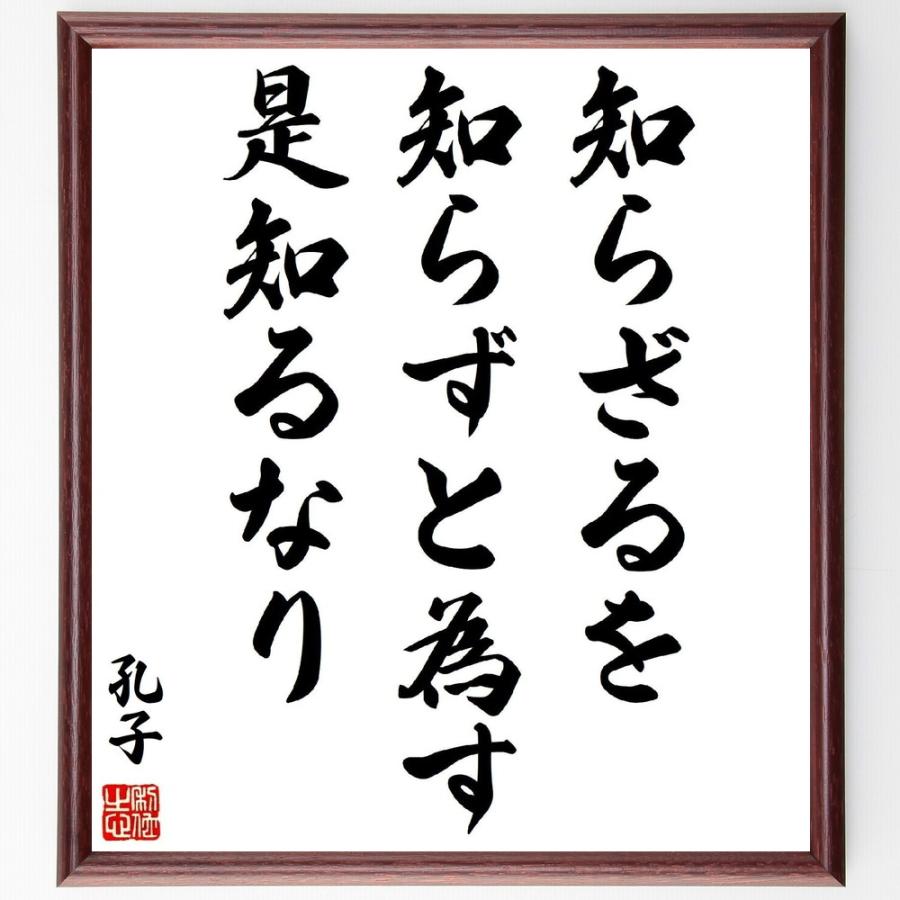 知らざるを
知らずと為す
是知るなり
孔子